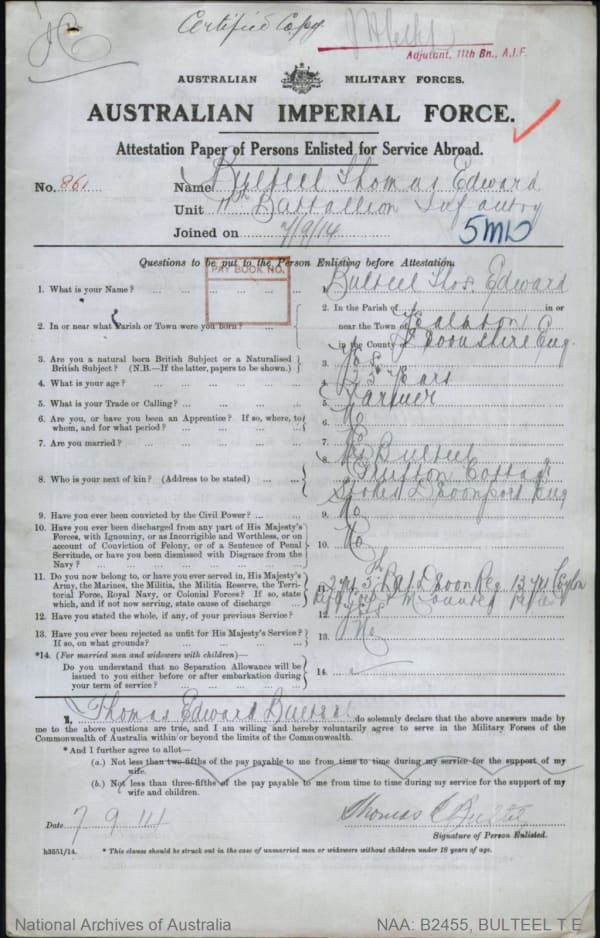 Certified Copy
Adjutant, 11th Bn., A.I.F.
AUSTRALIAN MILITARY FORCES.
AUSTRALIAN IMPERIAL FORCE.
Attestation Paper of Persons Enlisted for Service Abroad.
No. 861 Name Bulteel Thomas Edward
Unit 11th Battallion Infantry
Joined on 7/9/14
5MD
Questions to be put to the Person Enlisting before Attestation.
PAY BOOK NO.
1. What is your Name? ... Bulteel Thos. Edward
2. In or near what Parish or Town were you born? ...
2. In the Parish of in or
near the Town of
in the County of Devonshire Eng.
3. Are you a natural born British Subject or a Naturalised
British Subject? (N.B.—If the latter, papers to be shown.) 3. Yes
4. What is your age? ... 4. Years
5. What is your Trade or Calling? ... 5. Farmer
6. Are you, or have you been an Apprentice? If so, where, to
whom, and for what period? ... 6. No
7. Are you married? ... 7. No
8. Who is your next of kin? (Address to be stated) ... 8. Bulteel
Cottage
Stokes Devonport Eng
9. Have you ever been convicted by the Civil Power? ... 9. No
10. Have you ever been discharged from any part of His Majesty's
Forces, with Ignominy, or as Incorrigible and Worthless, or on
account of Conviction of Felony, or of a Sentence of Penal
Servitude, or have you been dismissed with Disgrace from the
Navy? ... 10. No
11. Do you now belong to, or have you ever served in, His Majesty's
Army, the Marines, the Militia, the Militia Reserve, the Terri-
torial Force, Royal Navy, or Colonial Forces? If so, state
which, and if not now serving, state cause of discharge
11. Devon Reg Ceylon
Mounted Rifles
12. Have you stated the whole, if any, of your previous Service? 12. Yes
13. Have you ever been rejected as unfit for His Majesty's Service?
If so, on what grounds? ... 13. No
*14. (For married men and widowers with children)—
Do you understand that no Separation Allowance will be
issued to you either before or after embarkation during
your term of service? ... 14.
I, Thomas Edward Bulteel do solemnly declare that the above answers made by
me to the above questions are true, and I am willing and hereby voluntarily agree to serve in the Military Forces of the
Commonwealth of Australia within or beyond the limits of the Commonwealth.
* And I further agree to allot—
(a.) Not less than two-fifths of the pay payable to me from time to time during my service for the support of my
wife.
(b.) Not less than three-fifths of the pay payable to me from time to time during my service for the support of my
wife and children.
Date 7 9 14 Thomas E Bulteel
Signature of Person Enlisted.
h3551/14. * This clause should be struck out in the case of unmarried men or widowers without children under 18 years of age.
National Archives of Australia NAA: B2455, BULTEEL T E